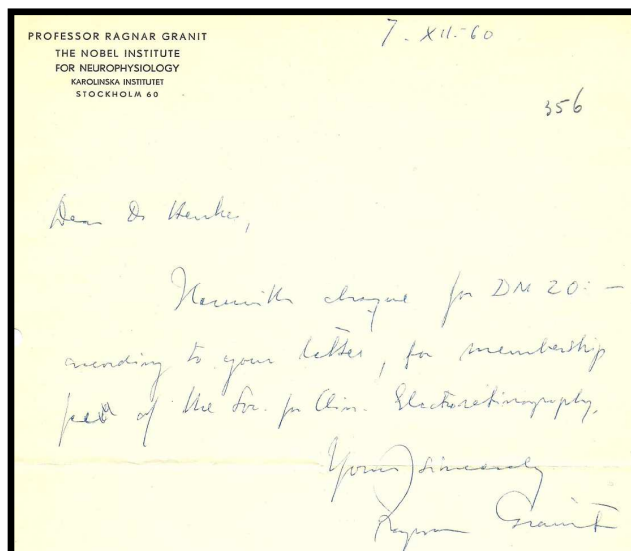 PROFESSOR RAGNAR GRANIT
THE NOBEL INSTITUTE
FOR NEUROPHYSIOLOGY
KAROLINSKA INSTITUTET
STOCKHOLM 60
7. XII. 60
356
Dear Dr Henkes,
Herewith cheque for DM 20: —
according to your letter, for membership
of the Soc. for Clin. Electroretinography.
Yours sincerely
Ragnar Granit